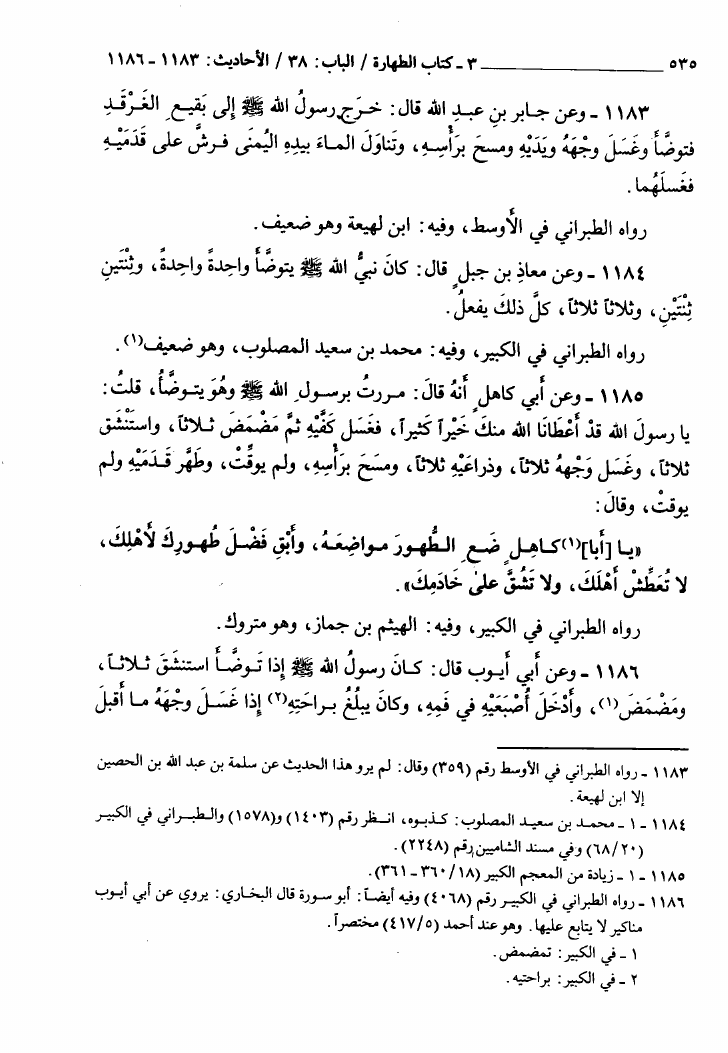 ٥٣٥ ــــــــــــــــ ٣ ـ كتاب الطهارة / الباب: ٣٨ / الأحاديث: ١١٨٣ ـ ١١٨٦
١١٨٣ ـ وعن جـابر بنِ عبـدِ الله قال: خـرَج رسولُ الله ﷺ إلى بَقيعِ الغَـرْقَـدِ
فتوضَّأَ وغَسَلَ وجْهَهُ ويَدَيْهِ ومسحَ برَأْسِـهِ، وتَناوَلَ المـاءَ بيدِهِ اليُمْنَى فـرشَّ على قَدَمَيْـهِ
فغَسلَهُما.
رواه الطبراني في الأوسط، وفيه: ابن لهيعة وهو ضعيف.
١١٨٤ ـ وعن معاذِ بن جبلٍ قال: كانَ نبيُّ الله ﷺ يتوضَّأُ واحدةً واحدةً، وثِنْتَينِ
ثِنْتَيْنِ، وثلاثاً ثلاثاً، كلَّ ذلكَ يفعلُ.
رواه الطبراني في الكبير، وفيه: محمد بن سعيد المصلوب، وهو ضعيف(١).
١١٨٥ ـ وعن أبي كاهلٍ أنهُ قالَ: مـررتُ برسـولِ الله ﷺ وهُوَ يتـوضَّأُ، قلتُ:
يا رسولَ الله قدْ أعْطَانَا الله منكَ خَيْراً كَثيراً، فغَسلَ كفَّيْهِ ثمَّ مَضْمَضَ ثـلاثـاً، واستَنْشَقَ
ثلاثاً، وغَسَلَ وَجْهَهُ ثلاثاً، وذراعَيْهِ ثلاثاً، ومسَحَ برَأْسِهِ، ولم يوقِّتْ، وطَهَّرَ قَـدَمَيْهِ ولم
يوقتْ، وقالَ:
«يـا [أبا](١)كـاهـلٍ ضَـعِ الـطُّهـورَ مـواضِعَـهُ، وأَبْقِ فَضْـلَ طُهـورِكَ لأَهْلِكَ،
لا تُعَطِّشْ أَهْلَكَ، ولا تَشُقَّ علىٰ خَادِمِكَ».
رواه الطبراني في الكبير، وفيه: الهيثم بن جماز، وهو متروك.
١١٨٦ ـ وعن أبي أيـوب قال: كـانَ رسولُ الله ﷺ إذا تَـوضَّـأَ استنشَقَ ثـلاثـاً،
ومَضْمَضَ(١)، وأَدْخَلَ أُصْبَعَيْهِ في فَمِهِ، وكانَ يبلُغُ بـراحَتِهِ(٢) إذا غَسَـلَ وجْهَهُ مـا أقبلَ
١١٨٣ ـ رواه الطبراني في الأوسط رقم (٣٥٩) وقال: لم يرو هذا الحديث عن سلمة بن عبد الله بن الحصين
إلا ابن لهيعة.
١١٨٤ ـ ١ ـ محمـد بن سعيـد المصلوب: كـذبـوه، انـظر رقم (١٤٠٣) و(١٥٧٨) والـطبـراني في الكبيـر
(٢٠/ ٦٨) وفي مسند الشاميين رقم (٢٢٤٨).
١١٨٥ ـ ١ ـ زيادة من المعجم الكبير (١٨/ ٣٦٠ ـ ٣٦١).
١١٨٦ ـ رواه الطبراني في الكبيـر رقم (٤٠٦٨) وفيه أيضـاً: أبو سـورة قال البخـاري: يروي عن أبي أيـوب
مناكير لا يتابع عليها. وهو عند أحمد (٥/ ٤١٧) مختصراً.
١ ـ في الكبير: تمضمض.
٢ ـ في الكبير: براحتيه.